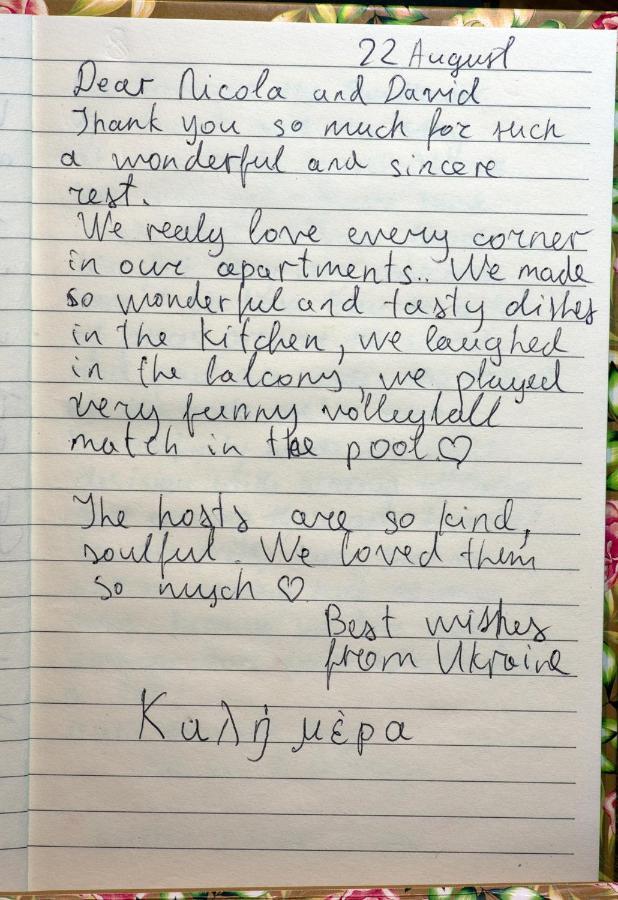 22 August
Dear Nicola and David
Thank you so much for such
a wonderful and sincere
rest.
We realy love every corner
in our apartments.. We made
so wonderful and tasty dishes
in the kitchen, we laughed
in the balcony, we played
very funny volleyball
match in the pool ♡
The hosts are so kind,
soulful. We loved them
so much ♡
Best wishes
from Ukraine
Καλή μέρα